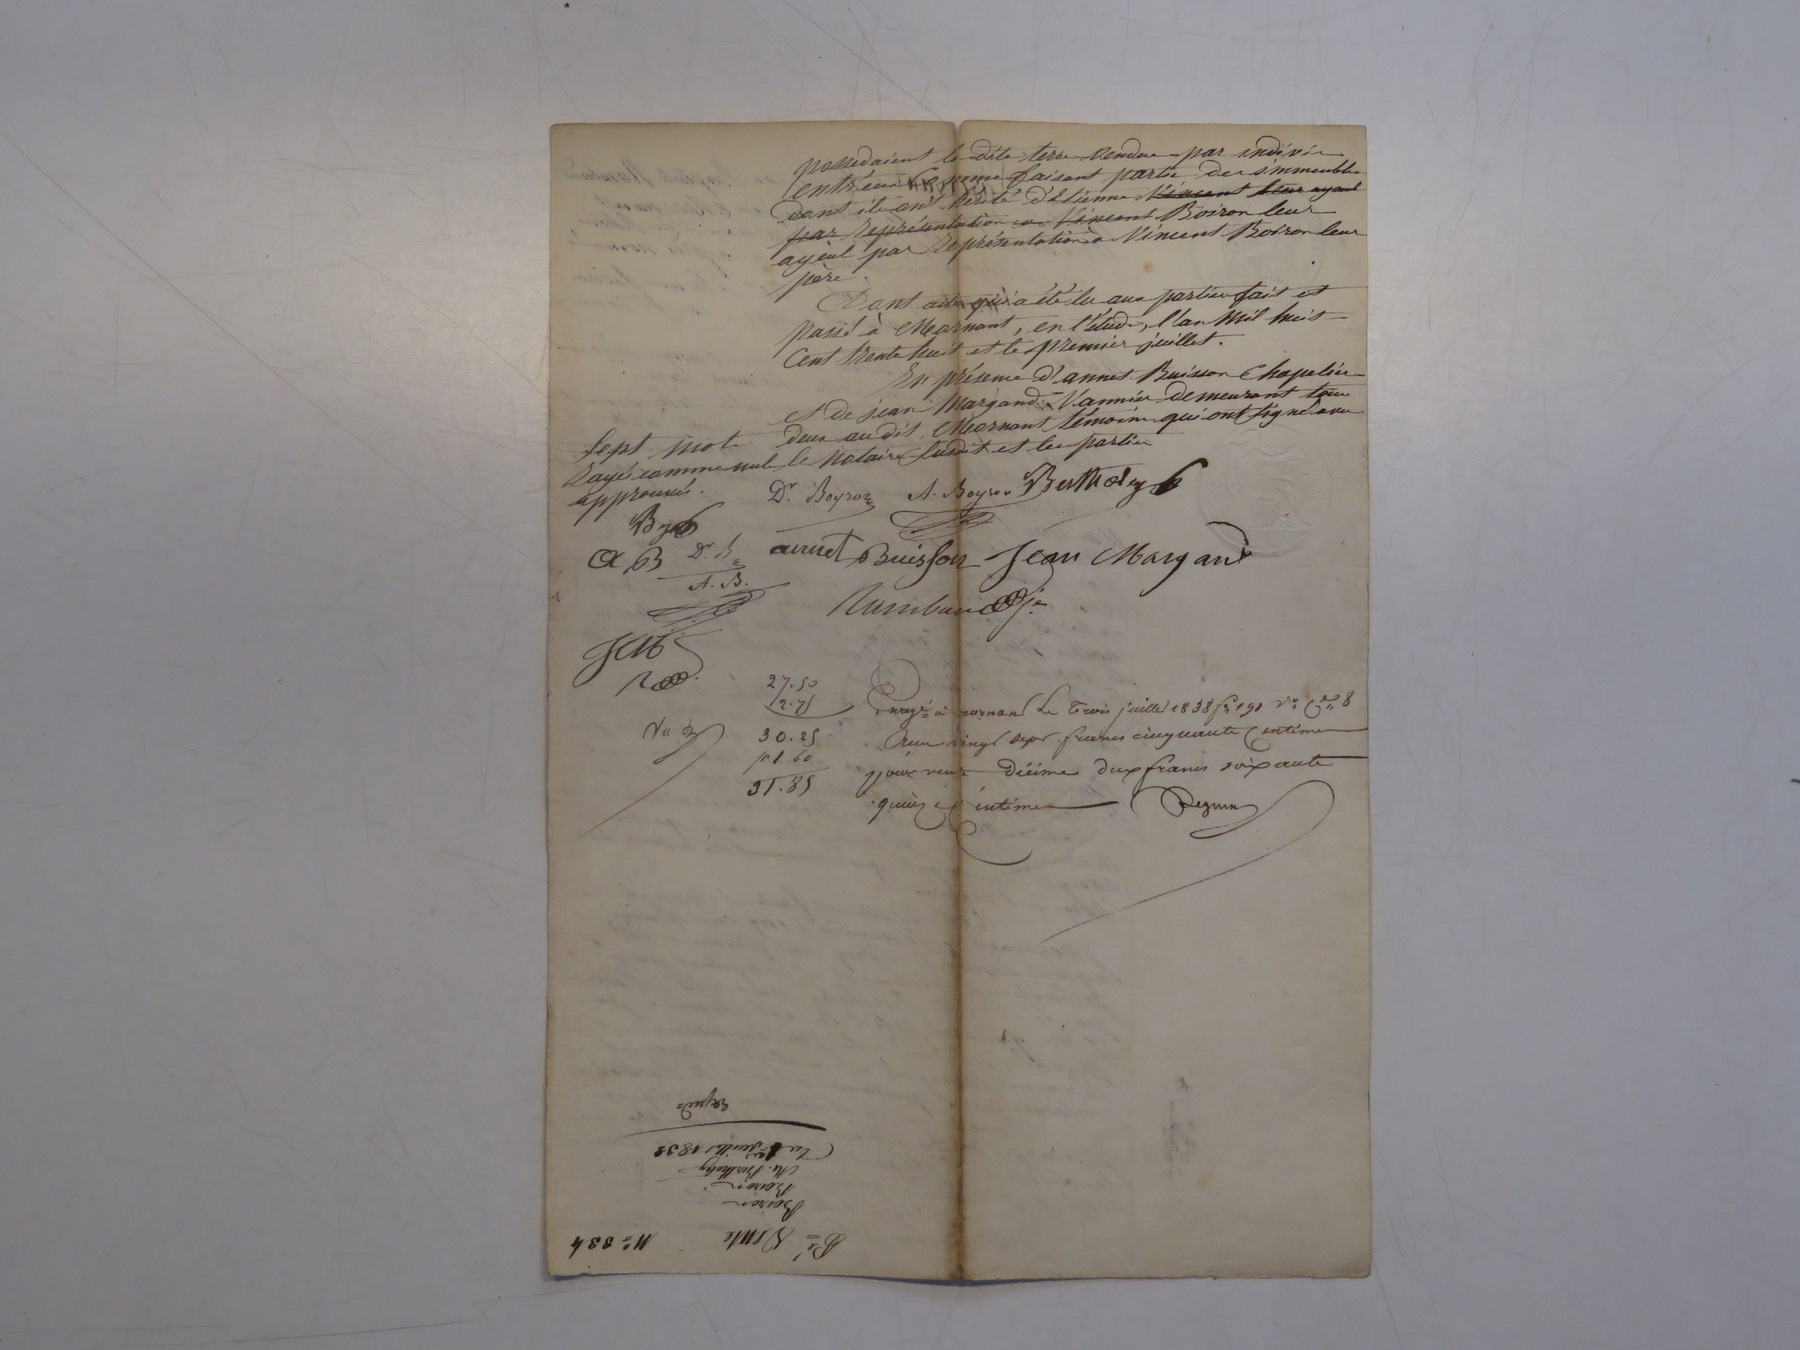 possedaient la dite terre vendue par indivis
entr'eux comme faisant partie des immeubles
dont ils ont hérité d'Etienne Vincent leur ayeul
par représentation a Vincent Boiron leur
ayeul par représentation a Vincent Boiron leur
père.
Dont acte qui a été lu aux parties fait et
passé à Mornant, en l'étude, l'an Mil huit
Cent trente huit et le premier juillet.
En présence d'annet Buisson Chapelier
et de jean Margand Vannier demeurant tous
deux audit Mornant témoins qui ont signé avec
le Notaire susdit et les parties
Sept mots
rayés comme nuls
approuvés.
Dr. Boyron A. Boyron Bertholey
annet Buisson Jean Margand
A B Dr. B
A. B.
JM
27.50
2.75
30.25
1 60
31.85
Vu
Enregé à mornant Le Trois juillet 1838 fo 191 Vo Ce 8
Reçu vingt sept francs cinquante Centimes
pour decime deux francs soixante
quinze Centimes
Bt Vente No 334
Boiron
Boiron
M. Bertholey
Du 1er juillet 1838
expéd